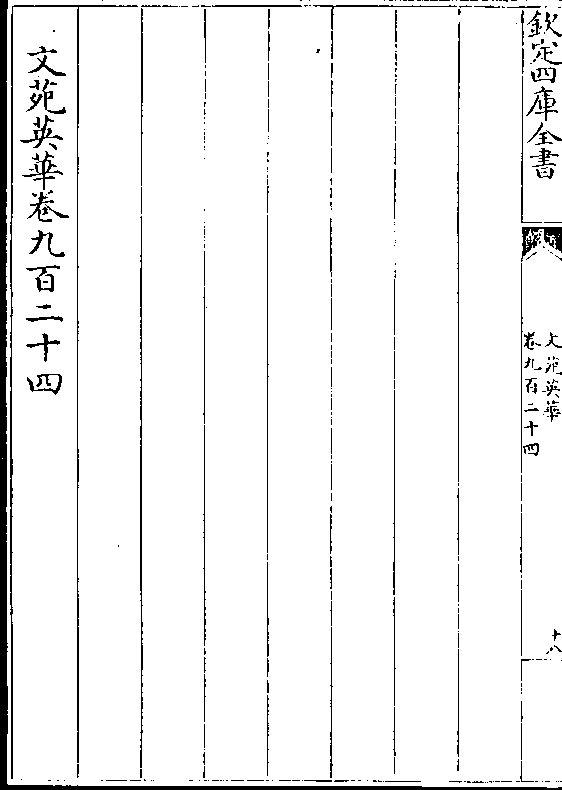 欽定四庫全書
文苑英華
卷九百二十四
十八
文苑英華卷九百二十四